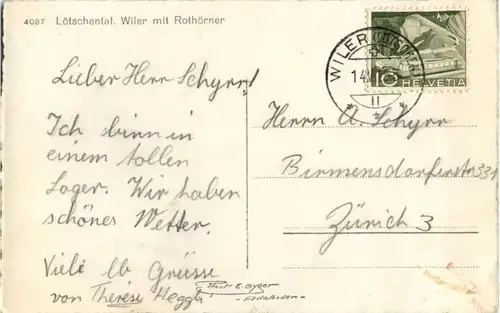 4087 Lötschental. Wiler mit Rothörner
WILER (LÖTSCHEN)
14.
II
10 HELVETIA
Lieber Herr Schyrr!
Ich binn in
einem tollen
Lager. Wir haben
schönes Wetter.
Viele lb Grüsse
von Therese Heggli
Herrn A. Schyrr
Birmensdorferstr 331
Zürich 3
Phot. E. Gyger
Adelboden